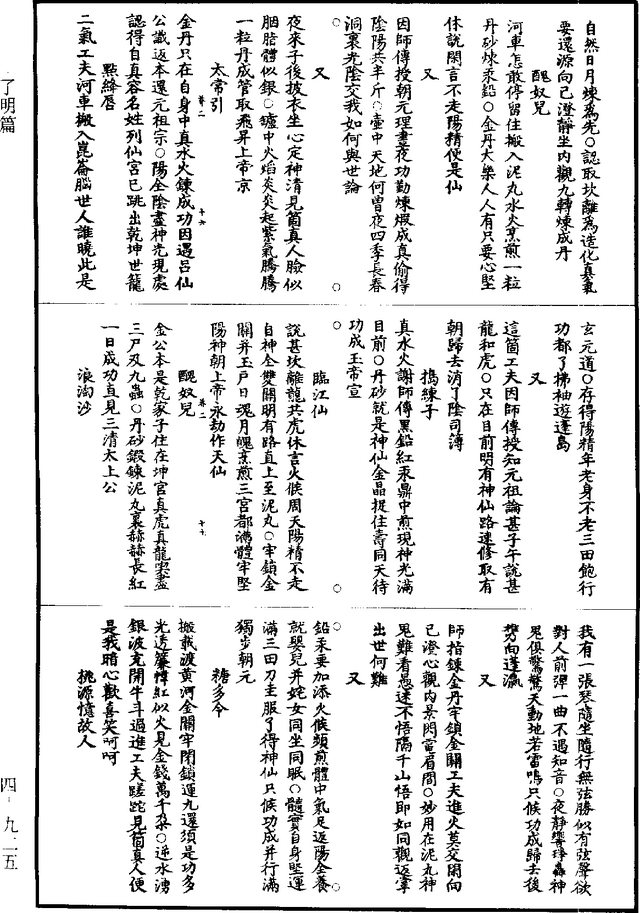 自然日月煉爲先○認取坎離爲造化真氣
要還源向己澄靜坐內觀九轉煉成丹
醜奴兒
河車怎敢停留住搬入泥丸水火烹煎一粒
丹砂煉汞鉛○金丹大藥人人有只要心堅
休說閑言不走陽精便是仙
又
因師傳授朝元理晝夜功勤煉煅成真偷得
陰陽共半斤○壺中天地何曾夜四季長春
洞裏光陰交我如何與世論
又
夜來子後披衣坐心定神清見箇真人臉似
胭脂體似銀○爐中火焰炎炎起紫氣騰騰
一粒丹成管取飛昇上帝京
太常引
金丹只在自身中真水火鍊成功因遇呂仙
公識返本還元祖宗○陽全陰盡神光現處
認得自真容名姓列仙宮已跳出乾坤世籠
點絳唇
二氣工夫河車搬入崑崙腦世人誰曉此是
玄元道○存得陽精年老身不老三田飽行
功都了拂袖遊蓬島
又
這箇工夫因師傳授知元祖論甚子午說甚
龍和虎○只在目前明有神仙路速修取有
朝歸去消了陰司簿
搗練子
真水火謝師傳黑鉛紅汞鼎中煎現神光滿
目前○丹砂就是神仙金晶捉住壽同天待
功成玉帝宣
臨江仙
說甚坎離龍共虎休言火候周天陽精不走
自神全雙關明有路直上至泥丸○牢鎖金
關并玉戶日魂月魄烹煎三宮都滿體牢堅
陽神朝上帝永劫作天仙
醜奴兒
金公本是乾家子住在坤宮真虎真龍
三尸及九蟲○丹砂鍛鍊泥丸裏赫赫長紅
一日成功直見三清太上公
浪淘沙
我有一張琴隨坐隨行無弦勝似有弦聲欲
對人前彈一曲不遇知音○夜靜響錚轟神
鬼俱驚驚天動地若雷鳴只候功成歸去後
攜向蓬瀛
又
師指鍊金丹牢鎖金關工夫進火莫交閑向
己澄心觀內景閃電眉間○妙用在泥丸神
鬼難看愚迷不悟隔千山悟即如同觀返掌
出世何難
又
鉛汞要加添火候頻煎體中氣足返陽全養
就嬰兒并姹女同坐同眠○髓實自身堅運
滿三田刀圭服了得神仙只候功成并行滿
獨步朝元
糖多令
搬載渡黃河金關牢閉鎖運九還須是功多
光透簾幃紅似火見金錢萬千朵○逆水湧
銀波克開牛斗過進工夫蹉跎見箇真人便
是我暗心歡喜笑呵呵
桃源憶故人
了明篇
四－九二五
卷二 十六
卷二 十七